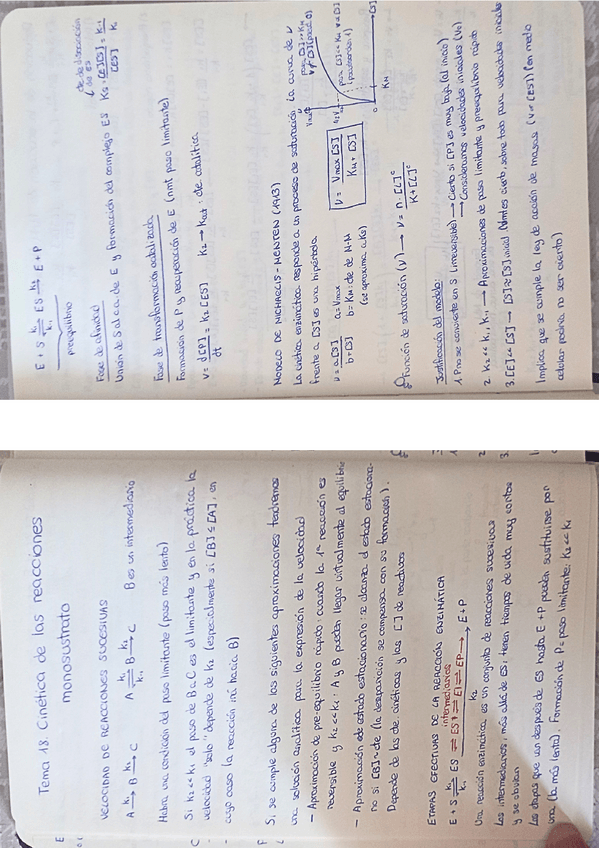 Tema 18. Cinética de las reacciones
monosustrato
VELOCIDAD DE REACCIONES SUCESIVAS
A →k₁ B →k₂ C    A ⇌k₁ k₋₁ B →k₂ C    B es un intermediario
Habrá una condición del paso limitante (paso más lento)
Si k₂ << k₁ el paso de B→C es el limitante y en la práctica la
velocidad "solo" depende de k₂ (especialmente si [B] ≤ [A], en
cuyo caso la reacción irá hacia B)
Si se cumple alguna de las siguientes aproximaciones tendremos
una solución analítica para la expresión de la velocidad
- Aproximación de pre-equilibrio rápido: cuando la 1ª reacción es
reversible y k₂ << k₁. A y B pueden llegar virtualmente al equilibrio
- Aproximación de estado estacionario: se alcanza el estado estaciona-
rio si [B] ≈ cte (la desaparición se compensa con su formación).
Depende de las ctes cinéticas y las [ ] de reactivos
ETAPAS EFECTIVAS DE LA REACCIÓN ENZIMÁTICA
intermediarios
E + S ⇌k₁ k₋₁ ES ⇌ ES‡ ⇌ EI ⇌ EP → E + P
k₂
Una reacción enzimática es un conjunto de reacciones sucesivas
Los intermediarios, más allá de ES, tienen tiempos de vida muy cortos
y se obvian
Las etapas que van después de ES hasta E + P pueden sustituirse por
una (la más lenta). Formación de P = paso limitante: k₂ << k₁
E + S ⇌k₁ k₋₁ ES →k₂ E + P
preequilibrio
cte de disociación
de ES
Fase de afinidad
Unión de S al c.a. de E y formación del complejo ES    Ks = [E][S]/[ES] = k₋₁/k₁
Fase de transformación catalizada
Formación de P y recuperación de E (nmt paso limitante)
v = d[P]/dt = k₂ [ES]    k₂ → kcat : cte catalítica
MODELO DE MICHAELIS-MENTEN (1913)
La cinética enzimática responde a un proceso de saturación. La curva de v
frente a [S] es una hipérbola
v = a[S]/b+[S]    a = Vmax
b = KM: cte de M-M
(se aproxima a Ks)
v = Vmax [S] / KM + [S]
Función de saturación (v) → v = n·[L]ᶜ/K+[L]ᶜ
Justificación del modelo:
1. P no se convierte en S (irreversible) → Cierto si [P] es muy baja (al inicio)
→ Consideramos velocidades iniciales (v₀)
2. k₂ << k₁, k₋₁ → Aproximaciones de paso limitante y preequilibrio rápido
3. [E] << [S] → [S] ≈ [S] inicial (Vmtes cierto, sobre todo para velocidades iniciales
Implica que se cumple la ley de acción de masas (v ∝ [ES]) (en medio
celular podría no ser cierto)